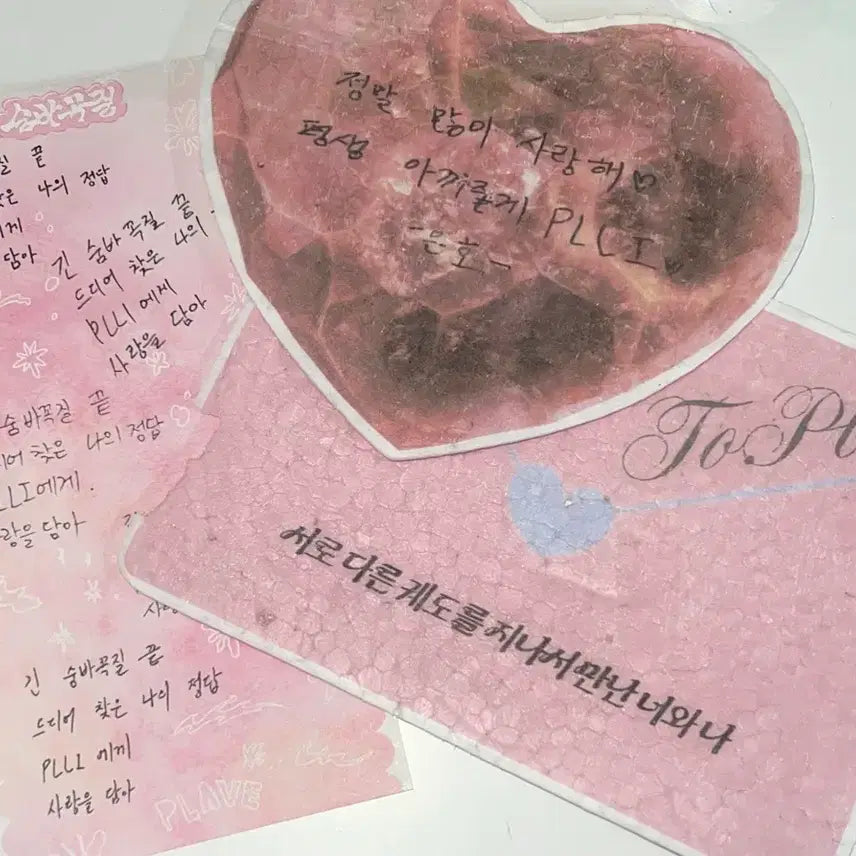 숨바꼭질
질 끝
찾은 나의 정답
에게
담아
긴 숨바꼭질 끝
드디어 찾은 나의
PLLI에게
사랑을 담아
숨바꼭질 끝
디어 찾은 나의 정답
LLI에게.
랑을 담아
긴 숨바꼭질 끝
드디어 찾은 나의 정답
PLLI 에게
사랑을 담아
PLAVE
정말 많이 사랑해♡
평생 아껴줄게 PLLI
-은호-
To.Pl
서로 다른 궤도를 지나서 만난 너와 나